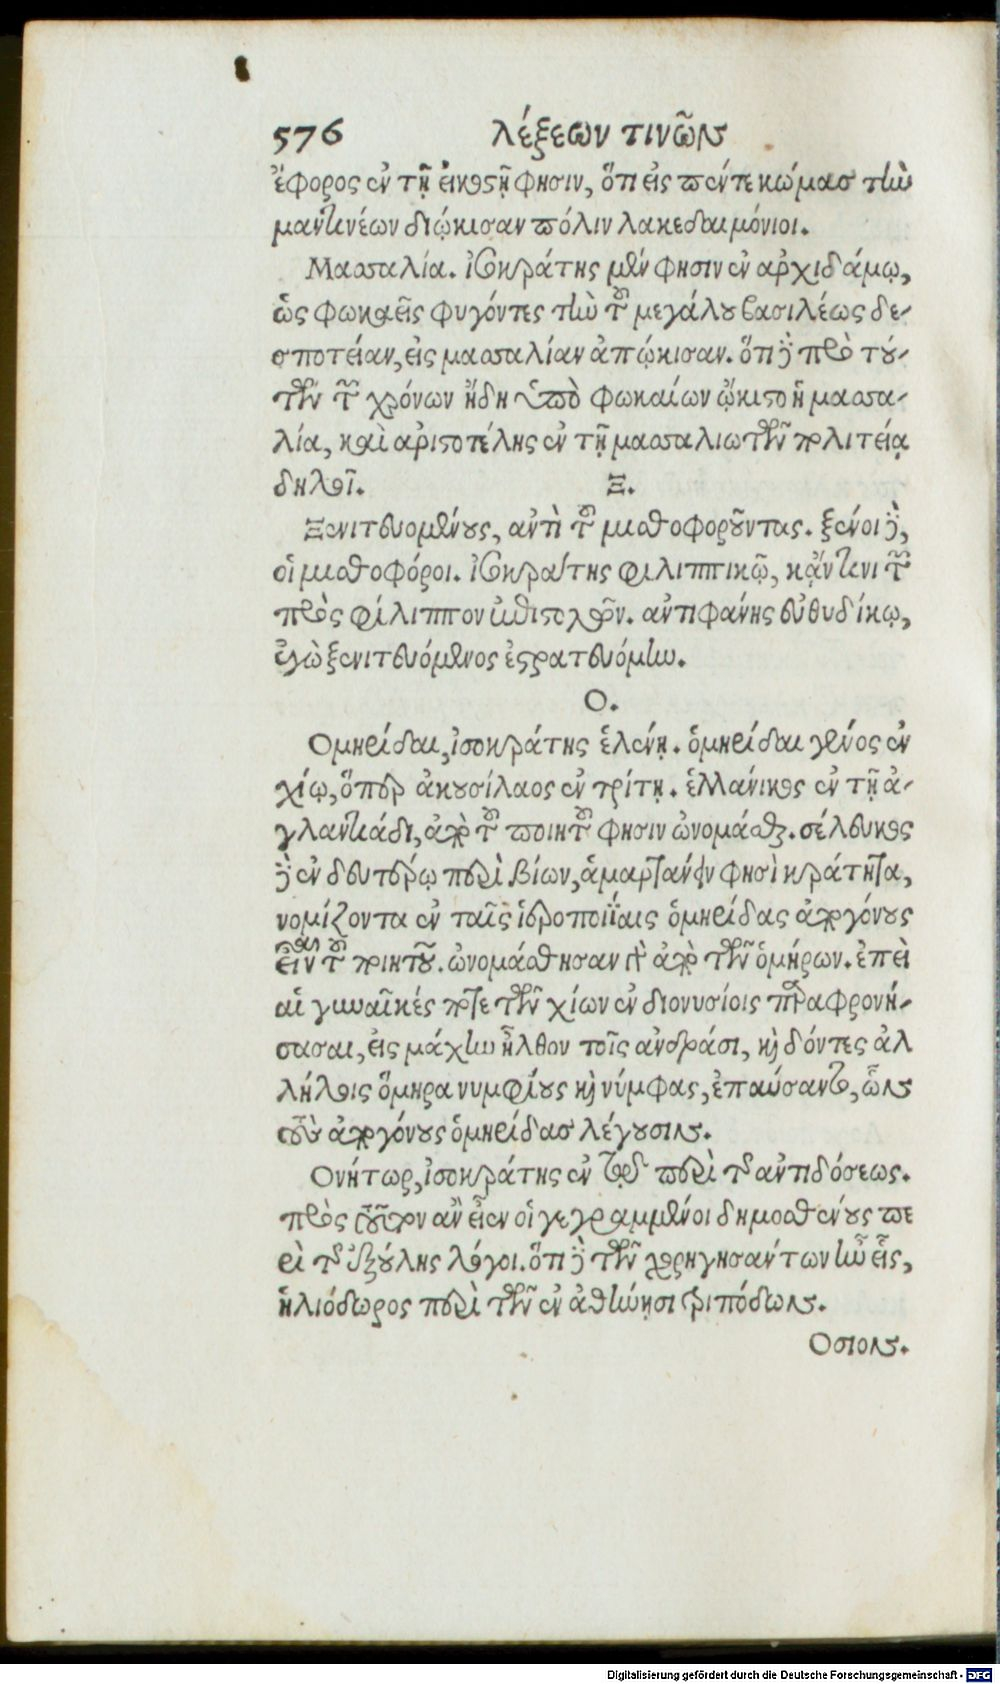 576 λέξεων τινῶν
ἔφορος ἐν τῇ εἰκοστῇ φησιν, ὅτι εἰς πέντε κώμας τὴν
μαντινέων διῴκισαν πόλιν λακεδαιμόνιοι.
Μασσαλία. ἰσοκράτης μέν φησιν ἐν ἀρχιδάμῳ,
ὡς φωκαεῖς φυγόντες τὴν τοῦ μεγάλου βασιλέως δε-
σποτείαν, εἰς μασσαλίαν ἀπῴκισαν. ὅτι δὲ πρὸ τού-
των τῶν χρόνων ἤδη ὑπὸ φωκαίων ᾤκιστο ἡ μασσα-
λία, καὶ ἀριστοτέλης ἐν τῇ μασσαλιωτῶν πολιτείᾳ
δηλοῖ. Ξ.
Ξενιτευομένους, ἀντὶ τοῦ μισθοφοροῦντας. ξένοι δὲ,
οἱ μισθοφόροι. ἰσοκράτης φιλιππικῷ, κἄν τινι τῶν
πρὸς φίλιππον ἐπιστολῶν. ἀντιφάνης εὐθυδίκῳ,
ἐγὼ ξενιτευόμενος ἐστρατευόμην.
Ο.
Ομηρίδαι, ἰσοκράτης ἑλένῃ. ὁμηρίδαι γένος ἐν
χίῳ, ὅπερ ἀκουσίλαος ἐν τρίτῃ. ἑλλάνικος ἐν τῇ ἀ-
γλαντιάδι, ἀπὸ τοῦ ποιητοῦ φησιν ὠνομάσθαι. σέλευκος
δὲ ἐν δευτέρῳ περὶ βίων, ἁμαρτάνειν φησὶ κράτητα,
νομίζοντα ἐν ταῖς ἱεροποιΐαις ὁμηρίδας ἀπογόνους
εἶναι τοῦ ποιητοῦ. ὠνομάσθησαν γὰρ ἀπὸ τῶν ὁμήρων. ἐπεὶ
αἱ γυναῖκές ποτε τῶν χίων ἐν διονυσίοις παραφρονή-
σασαι, εἰς μάχην ἦλθον τοῖς ἀνδράσι, καὶ δόντες ἀλ
λήλοις ὅμηρα νυμφίους καὶ νύμφας, ἐπαύσαντο, ὧν
τοὺς ἀπογόνους ὁμηρίδας λέγουσιν.
Ονήτωρ, ἰσοκράτης ἐν τῷ περὶ τῆς ἀντιδόσεως.
πρὸς τοῦτον ἂν εἶεν οἱ γεγραμμένοι δημοσθένους πε
ρὶ τῆς ἐξούλης λόγοι. ὅτι δὲ τῶν χορηγησάντων ἦν εἷς,
ἡλιόδωρος περὶ τῶν ἐν ἀθήνησι τριπόδων.
Οσιον.
Digitalisierung gefördert durch die Deutsche Forschungsgemeinschaft - DFG